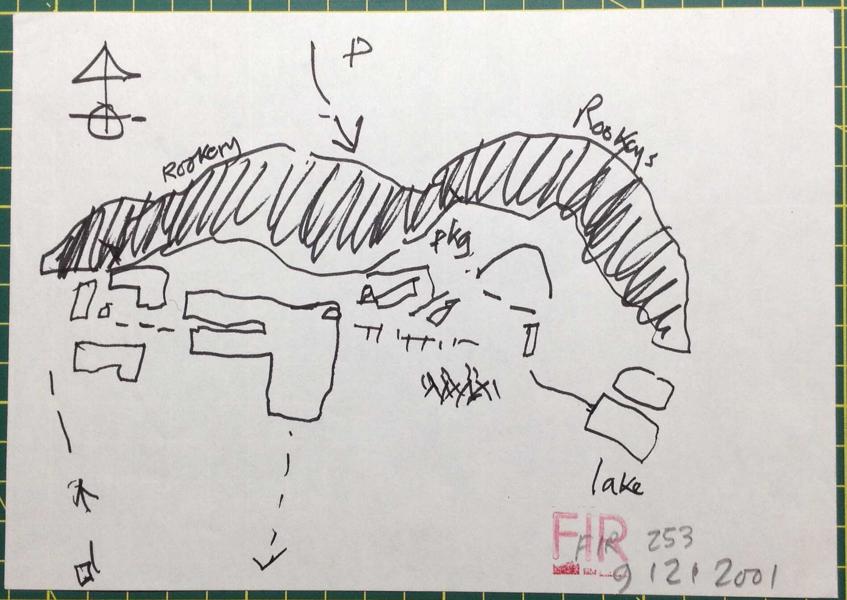 P
Rookery
Rookeys
pkg
lake
FIR
FIR 253
9 12 1 2001